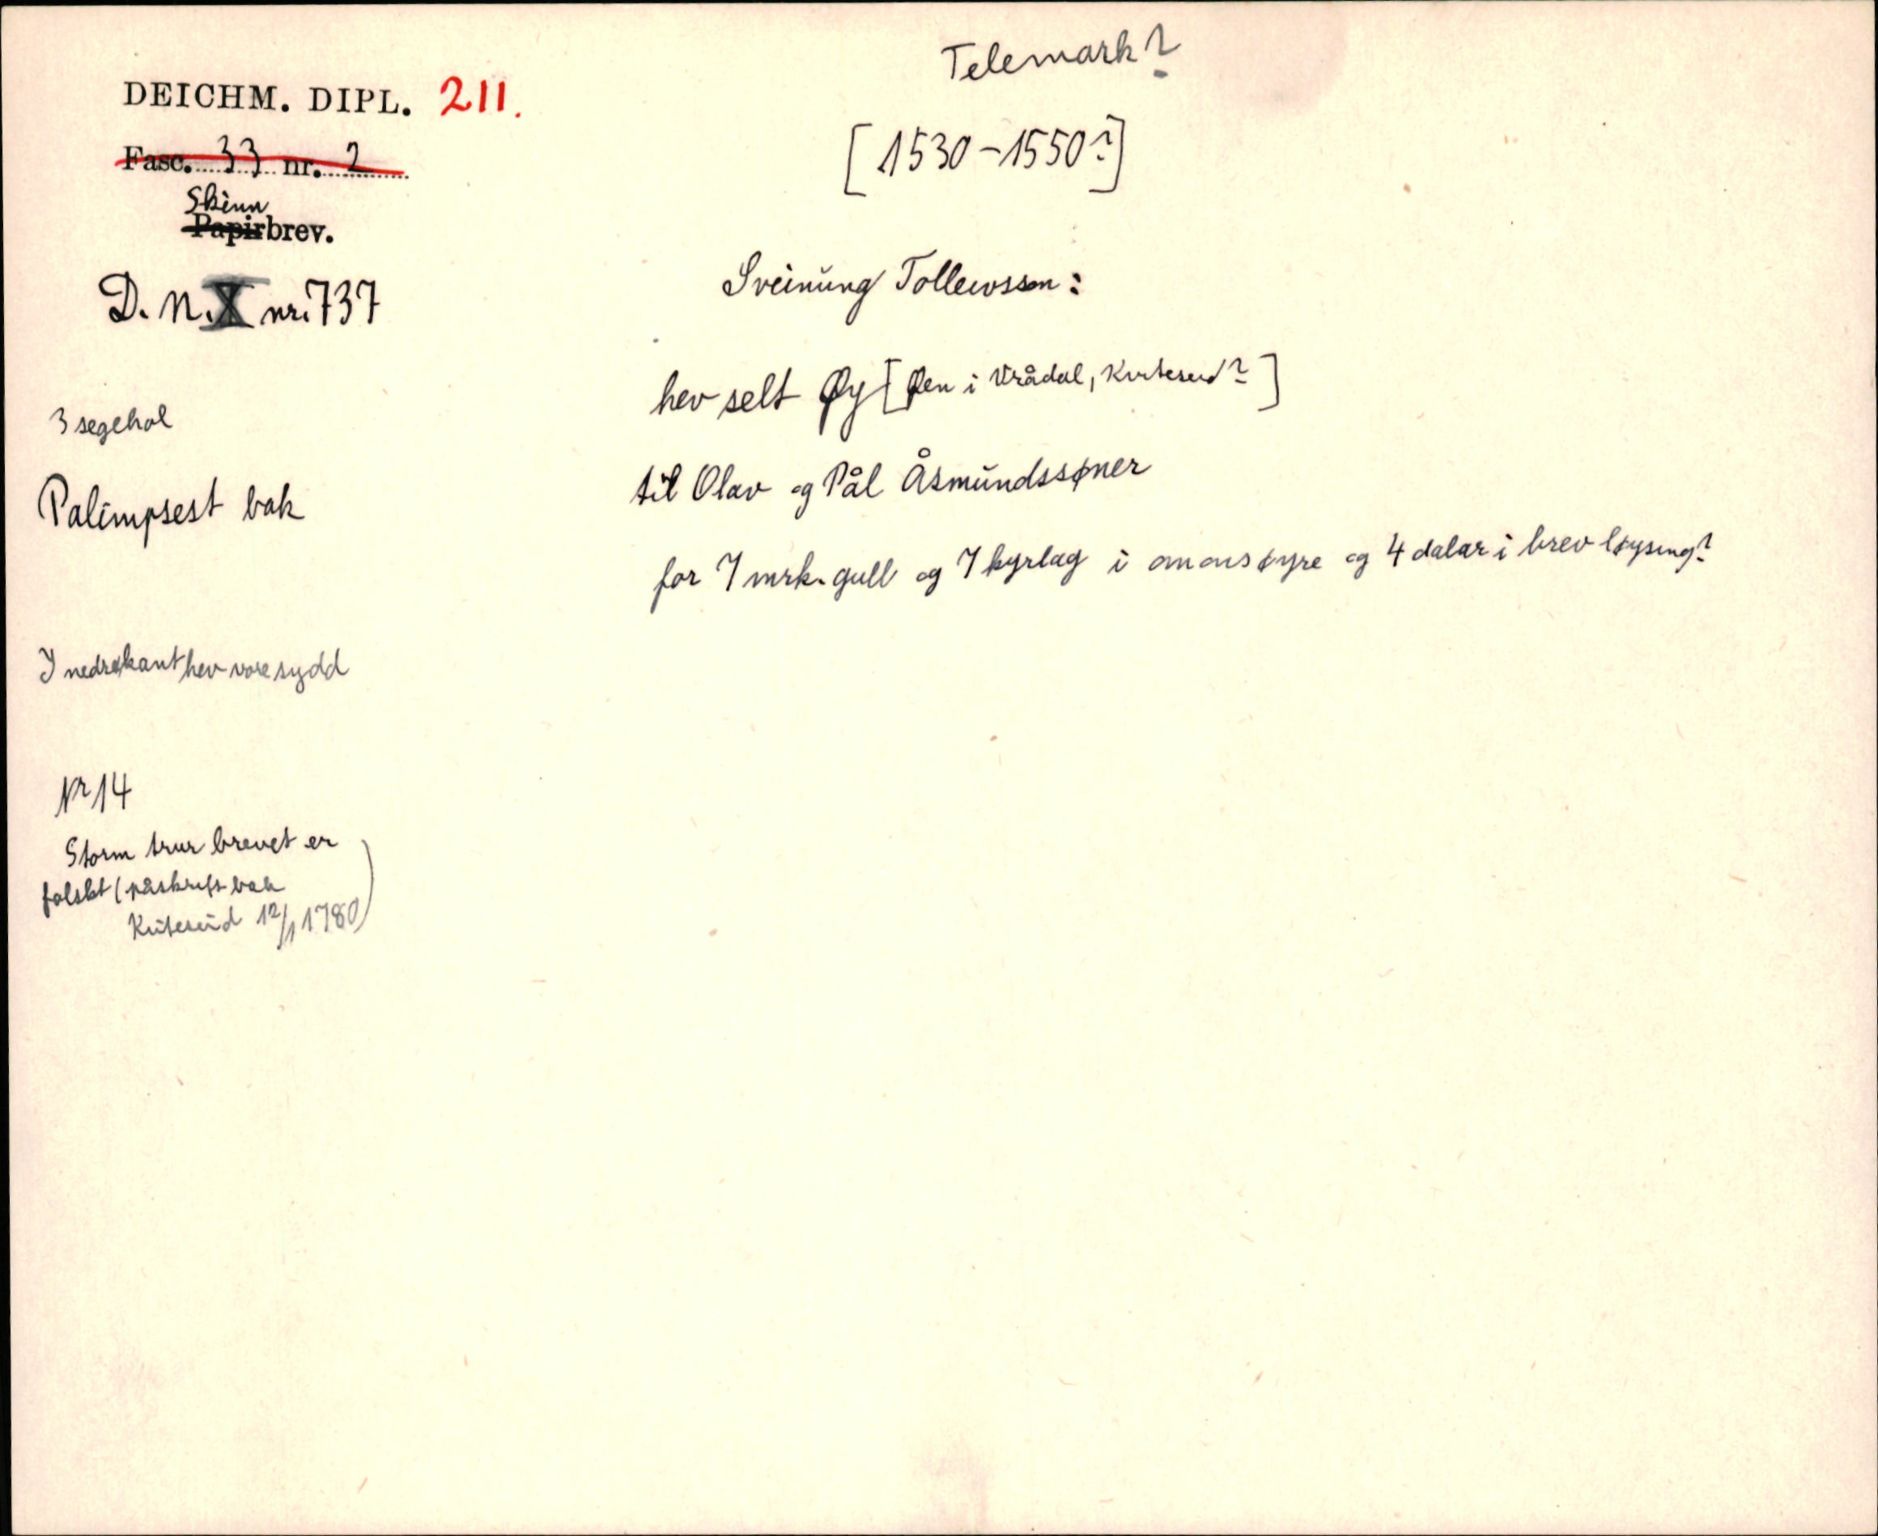 Telemark?
DEICHM. DIPL. 211.
[1530-1550?]
Fasc. 33 nr. 2
Skinn
Papirbrev.
D. N. X nr. 737
Sveinung Tollevsson:
hev selt Øy [Øen i Vrådal, Kviteseid?]
3 segehol
til Olav og Pål Åsmundssøner
Palimpsest bak
for 7 mrk. gull og 7 kyrlag i annansøyre og 4 dalar i brevløysing?
I nedrekant hev vore sydd
Nr 14
Storm trur brevet er
falskt (påskrift bak
Kviteseid 12/1 1780)